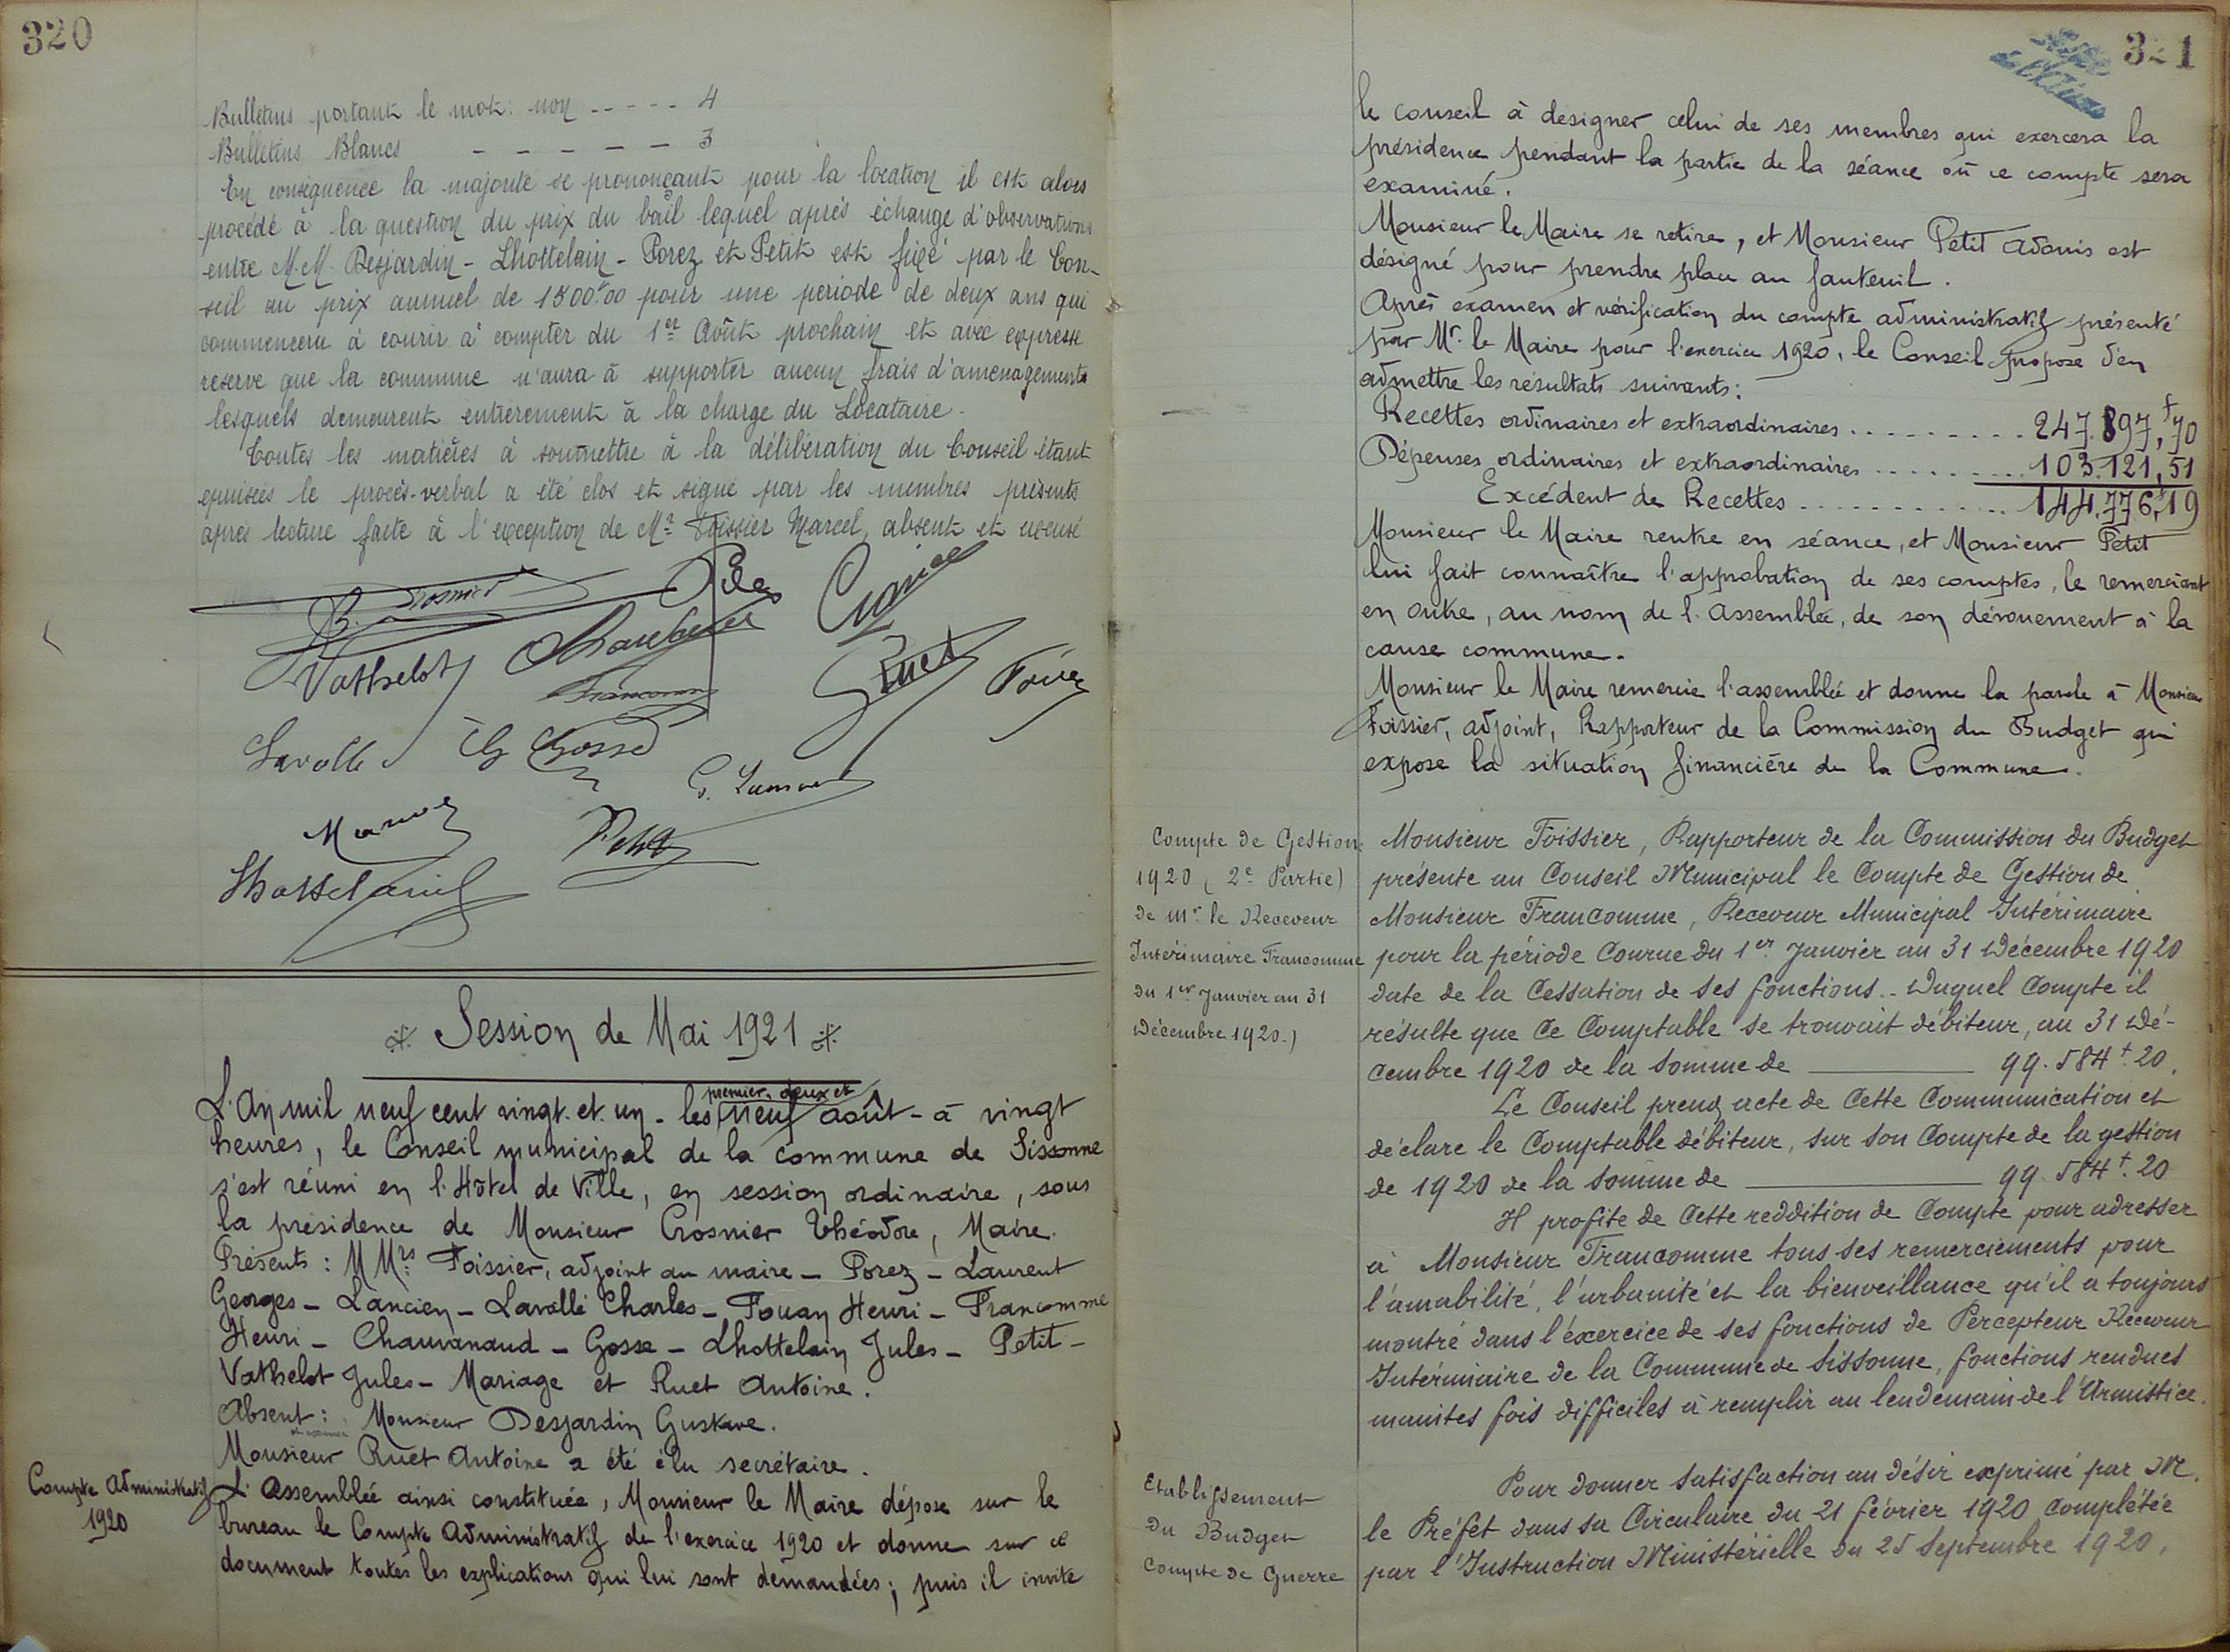 320
Bulletins portant le mot: non ----- 4
Bulletins Blancs ----- 3
En conséquence la majorité se prononçant pour la location il est alors
procédé à la question du prix du bail lequel après échange d'observations
entre M.M. Desjardin - Lhottelain - Porez et Petit est fixé par le Con-
seil au prix annuel de 1500f00 pour une période de deux ans qui
commencera à courir à compter du 1er Août prochain et avec expresse
réserve que la commune n'aura à supporter aucun frais d'aménagements
lesquels demeurent entièrement à la charge du Locataire.
Toutes les matières à soumettre à la délibération du Conseil étant
épuisées le procès-verbal a été clos et signé par les membres présents
après lecture faite à l'exception de Mr Foissier Marcel, absent et excusé
Vathelot
Francomme
Ruet
Porez
Lavallé
Gosse
Petit
Lhottelain
Session de Mai 1921
premier, deux et
L'An mil neuf cent vingt-et-un - les neuf août - à vingt
heures, le Conseil municipal de la commune de Sissonne
s'est réuni en l'Hôtel de Ville, en session ordinaire, sous
la présidence de Monsieur Crosnier Théodore, Maire.
Présents : M Mrs Foissier, adjoint au maire - Porez - Laurent
Georges - Lancien - Lavallé Charles - Fouan Henri - Francomme
Henri - Chauvanaud - Gosse - Lhottelain Jules - Petit -
Vathelot Jules - Mariage et Ruet Antoine.
Absent : Monsieur Desjardin Gustave.
Monsieur Ruet Antoine a été élu secrétaire.
Compte Administratif
1920
L'Assemblée ainsi constituée, Monsieur le Maire dépose sur le
bureau le Compte Administratif de l'exercice 1920 et donne sur ce
document toutes les explications qui lui sont demandées ; puis il invite
321
le conseil à désigner celui de ses membres qui exercera la
présidence pendant la partie de la séance où ce compte sera
examiné.
Monsieur le Maire se retire, et Monsieur Petit Adonis est
désigné pour prendre place au fauteuil.
Après examen et vérification du compte administratif présenté
par Mr. le Maire pour l'exercice 1920, le Conseil propose d'en
admettre les résultats suivants :
Recettes ordinaires et extraordinaires .......... 247.897,f70
Dépenses ordinaires et extraordinaires ......... 103.121,51
Excédent de Recettes ............ 144.776,f19
Monsieur le Maire rentre en séance, et Monsieur Petit
lui fait connaître l'approbation de ses comptes, le remerciant
en outre, au nom de l'Assemblée, de son dévouement à la
cause commune.
Monsieur le Maire remercie l'assemblée et donne la parole à Monsieur
Foissier, adjoint, Rapporteur de la Commission du Budget qui
expose la situation financière de la Commune.
Compte de Gestion
1920 (2e Partie)
de Mr le Receveur
Intérimaire Francomme
du 1er Janvier au 31
Décembre 1920.)
Monsieur Foissier, Rapporteur de la Commission du Budget
présente au Conseil Municipal le Compte de Gestion de
Monsieur Francomme, Receveur Municipal Intérimaire
pour la période Courue du 1er Janvier au 31 Décembre 1920
date de la Cessation de ses fonctions.. Duquel Compte il
résulte que ce Comptable se trouvait débiteur, au 31 Dé-
cembre 1920 de la somme de ——— 99.584f.20.
Le Conseil prend acte de cette Communication et
déclare le Comptable débiteur, sur son Compte de la gestion
de 1920 de la somme de ——— 99.584f.20
Il profite de cette reddition de Compte pour adresser
à Monsieur Francomme tous ses remerciements pour
l'amabilité, l'urbanité et la bienveillance qu'il a toujours
montré dans l'exercice de ses fonctions de Percepteur Receveur
Intérimaire de la Commune de Sissonne, fonctions rendues
maintes fois difficiles à remplir au lendemain de l'Armistice.
Etablissement
du Budget
Compte de Guerre
Pour donner satisfaction au désir exprimé par M.
le Préfet dans sa Circulaire du 21 février 1920 complétée
par l'Instruction Ministérielle du 25 Septembre 1920,